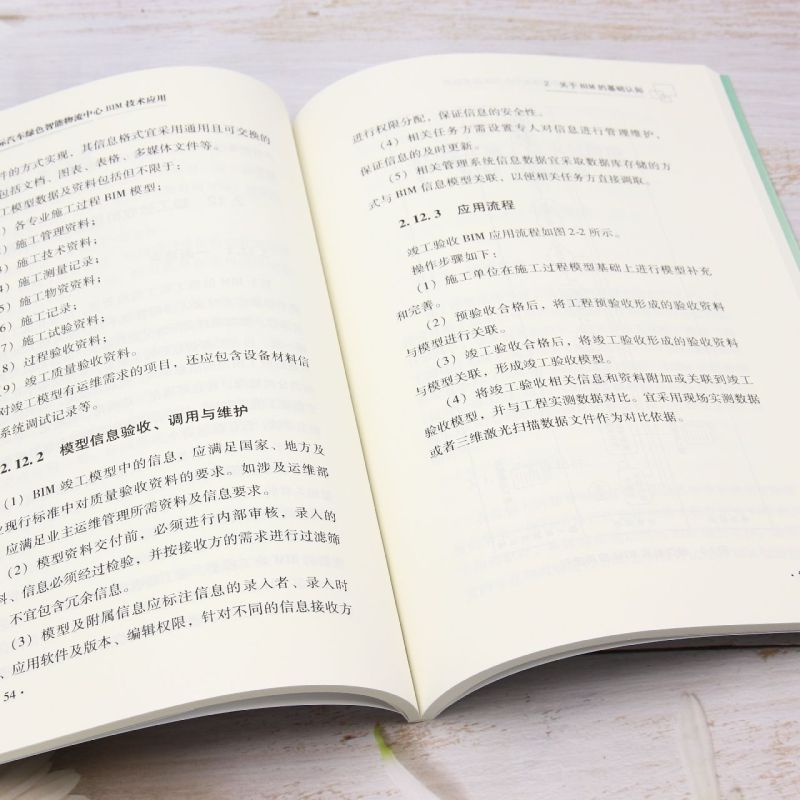 际汽车绿色智能物流中心 BIM 技术应用
件的方式实现，其信息格式宜采用通用且可交换的
包括文档、图表、表格、多媒体文件等。
工模型数据及资料包括但不限于：
）各专业施工过程 BIM 模型；
）施工管理资料；
3）施工技术资料；
4）施工测量记录；
5）施工物资资料；
6）施工记录；
7）施工试验资料；
8）过程验收资料；
9）竣工质量验收资料。
对竣工模型有运维需求的项目，还应包含设备材料信
系统调试记录等。
2. 12. 2 模型信息验收、调用与维护
（1）BIM 竣工模型中的信息，应满足国家、地方及
业现行标准中对质量验收资料的要求。如涉及运维部
应满足业主运维管理所需资料及信息要求。
（2）模型资料交付前，必须进行内部审核，录入的
料、信息必须经过检验，并按接收方的需求进行过滤筛
不宜包含冗余信息。
（3）模型及附属信息应标注信息的录入者、录入时
、应用软件及版本、编辑权限，针对不同的信息接收方
54 ·
2 关于 BIM 的基础认知
进行权限分配，保证信息的安全性。
（4）相关任务方需设置专人对信息进行管理维护，
保证信息的及时更新。
（5）相关管理系统信息数据宜采取数据库存储的方
式与 BIM 信息模型关联，以便相关任务方直接调取。
2. 12. 3 应用流程
竣工验收 BIM 应用流程如图 2-2 所示。
操作步骤如下：
（1）施工单位在施工过程模型基础上进行模型补充
和完善。
（2）预验收合格后，将工程预验收形成的验收资料
与模型进行关联。
（3）竣工验收合格后，将竣工验收形成的验收资料
与模型关联，形成竣工验收模型。
（4）将竣工验收相关信息和资料附加或关联到竣工
验收模型，并与工程实测数据对比。宜采用现场实测数据
或者三维激光扫描数据文件作为对比依据。